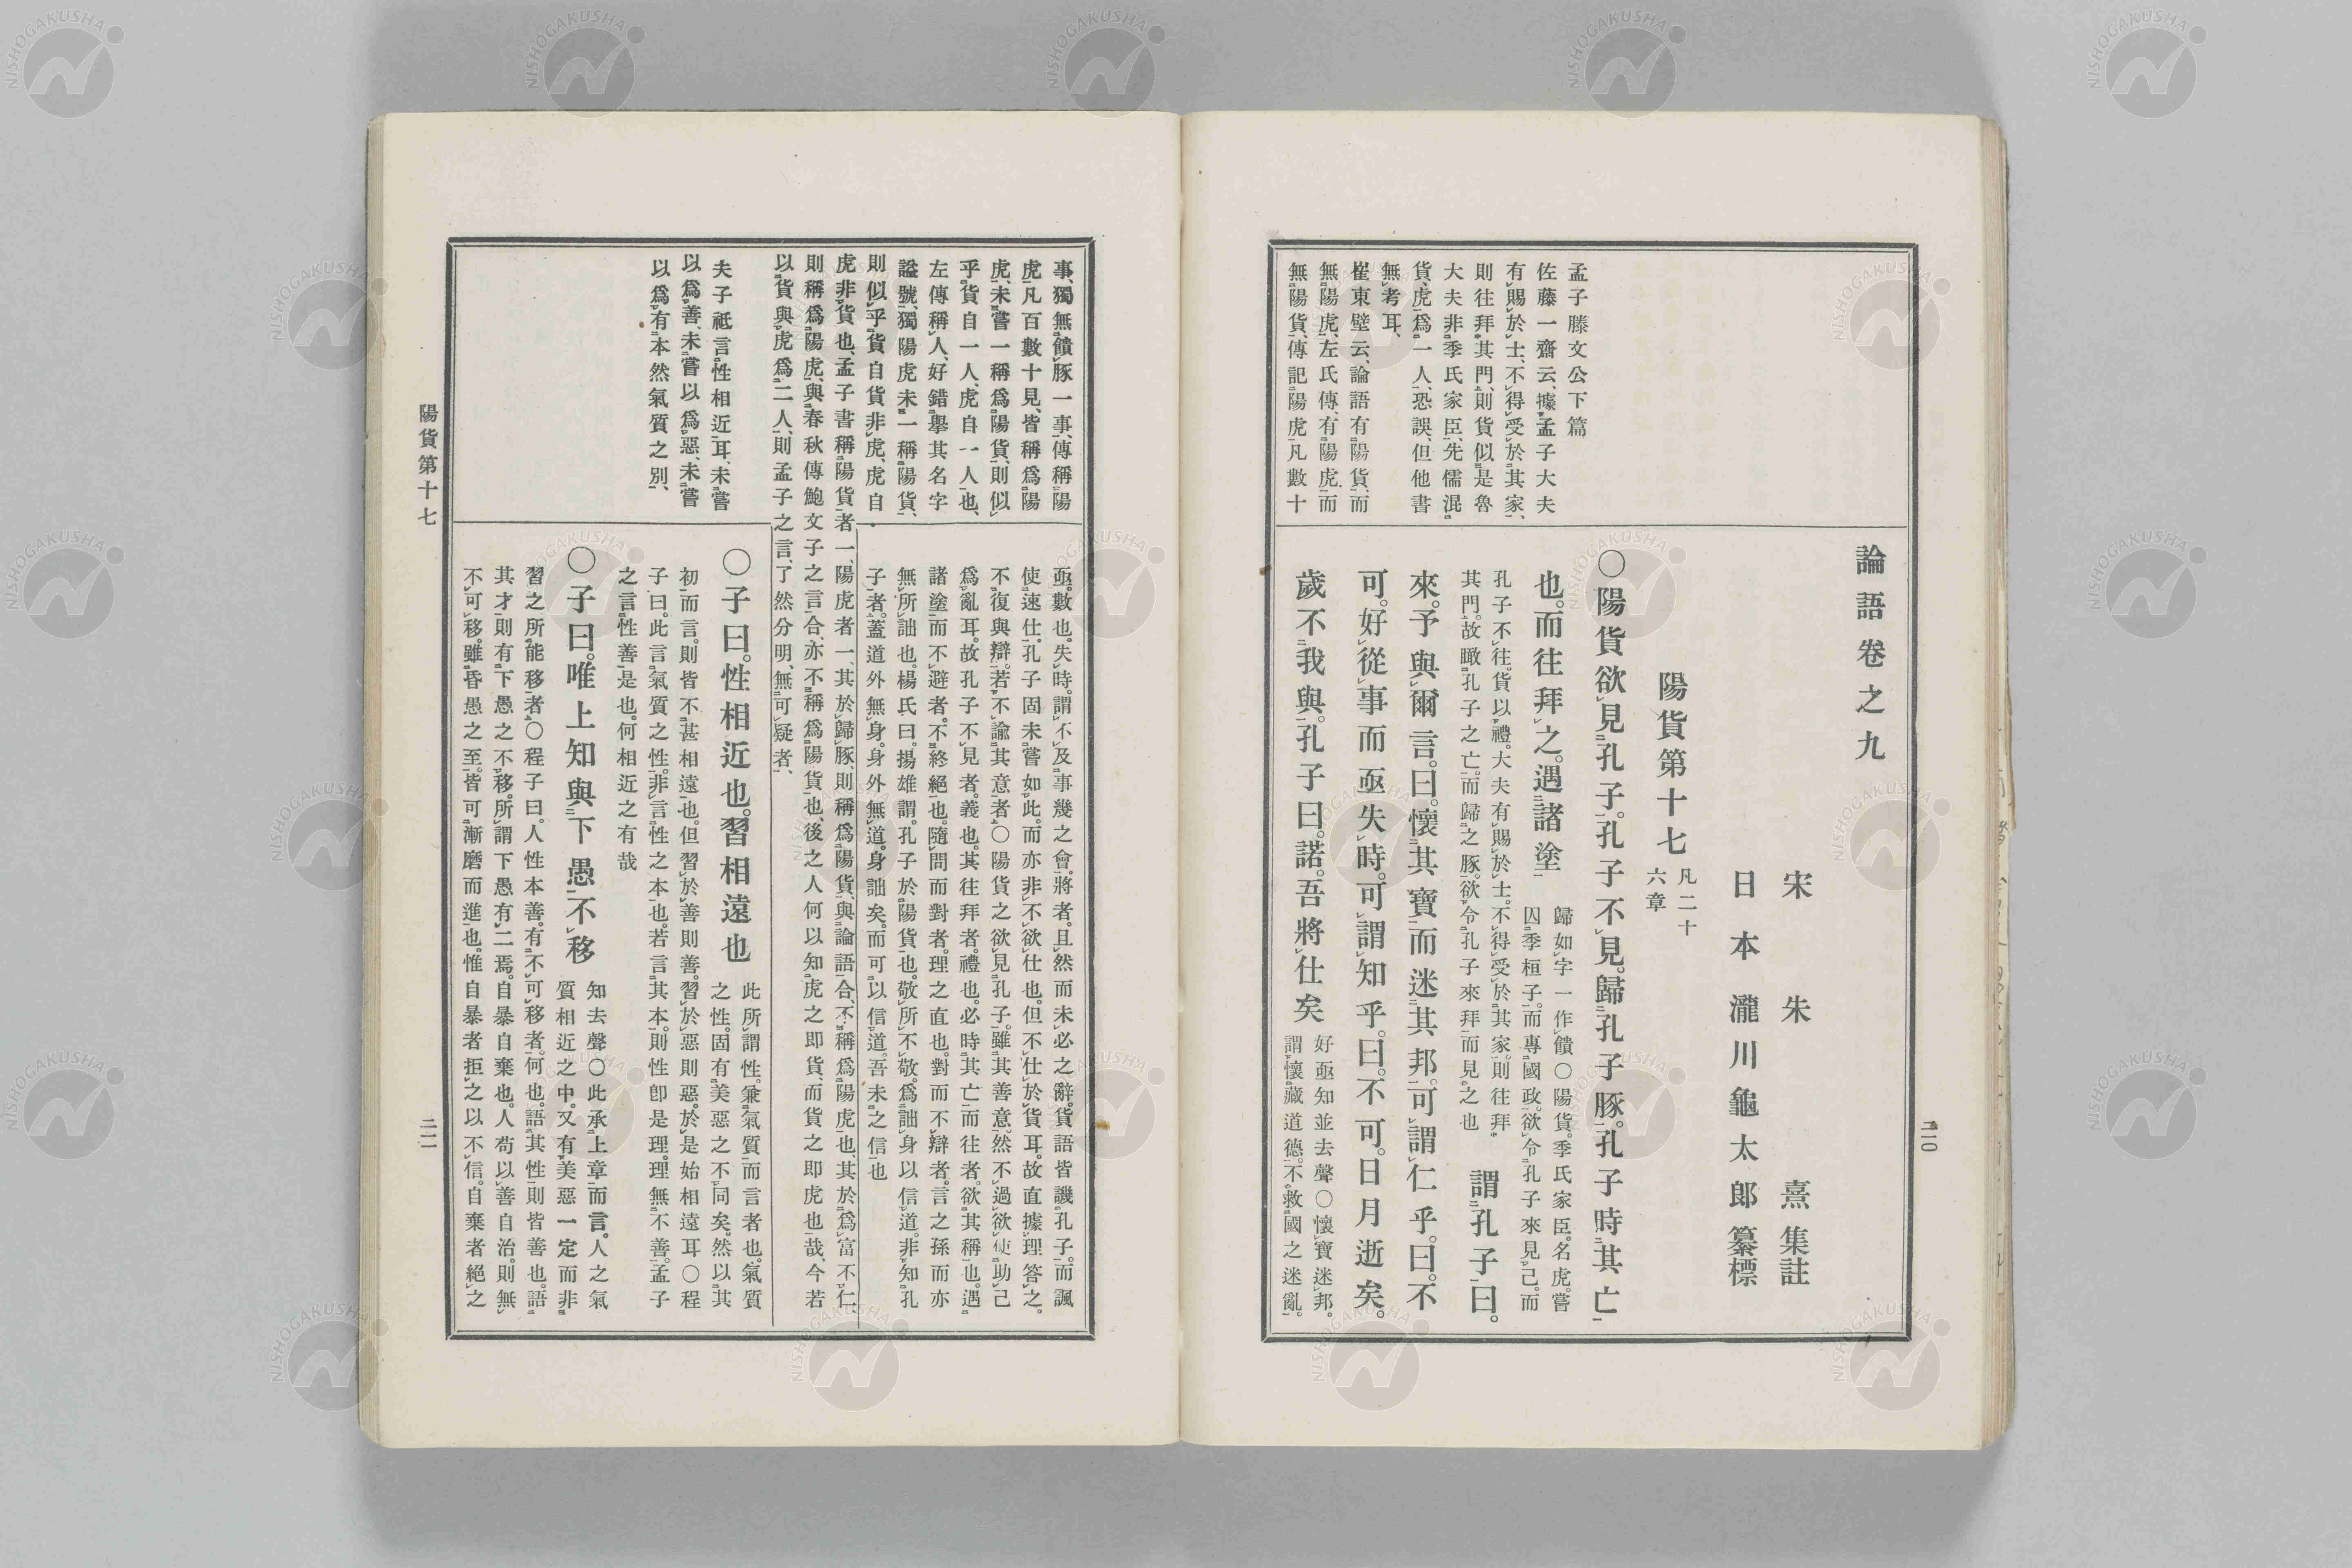 論語卷之九
宋 朱 熹 集註
日本 瀧川龜太郎 纂標
陽貨第十七 凡二十六章
孟子滕文公下篇
佐藤一齋云、據孟子大夫
有賜於士、不得受於其家、
則往拜其門、則貨似是魯
大夫非季氏家臣、先儒混
貨、虎爲一人、恐誤、但他書
無考耳、
崔東壁云、論語有陽貨、而
無陽虎、左氏傳、有陽虎、而
無陽貨、傳記陽虎凡數十
○陽貨欲見孔子。孔子不見。歸孔子豚。孔子時其亡
也。而往拜之。遇諸塗
歸如字一作饋○陽貨。季氏家臣。名虎。嘗
囚季桓子。而專國政。欲令孔子來見己。而
孔子不往。貨以禮。大夫有賜於士。不得受於其家。則往拜
其門。故瞰孔子之亡。而歸之豚。欲令孔子來拜而見之也
謂孔子曰。
來。予與爾言。曰。懷其寶而迷其邦。可謂仁乎。曰。不
可。好從事而亟失時。可謂知乎。曰。不可。日月逝矣。
歲不我與。孔子曰。諾。吾將仕矣
好亟知並去聲○懷寶迷邦。
謂懷藏道德。不救國之迷亂。
二一〇
事、獨無饋豚一事、傳稱陽
虎凡百數十見、皆稱爲陽
虎、未嘗一稱爲陽貨、則似
乎貨自一人、虎自一人也、
左傳稱人、好錯擧其名字
謚號、獨陽虎未一稱陽貨、
則似乎貨自貨非虎、虎自
虎非貨也、孟子書稱陽貨者一、陽虎者一、其於歸豚、則稱爲陽貨、與論語合、不稱爲陽虎也、其於爲富不仁、
則稱爲陽虎、與春秋傳鮑文子之言合、亦不稱爲陽貨也、後之人何以知虎之卽貨、而貨之卽虎也哉、今若
以貨與虎爲二人、則孟子之言、了然分明、無可疑者、
亟。數也。失時。謂不及事幾之會。將者。且然而未必之辭。貨語皆譏孔子。而諷
使速仕。孔子固未嘗如此。而亦非不欲仕也。但不仕於貨耳。故直據理答之。
不復與辯。若不諭其意者。○陽貨之欲見孔子。雖其善意。然不過欲使助己
爲亂耳。故孔子不見者。義也。其往拜者。禮也。必時其亡而往者。欲其稱也。遇
諸塗而不避者。不終絕也。隨問而對者。理之直也。對而不辯者。言之孫而亦
無所詘也。楊氏曰。揚雄謂。孔子於陽貨也。敬所不敬。爲詘身以信道。非知孔
子者。蓋道外無身。身外無道。身詘矣。而可以信道。吾未之信也
夫子祗言性相近耳、未嘗
以爲善、未嘗以爲惡、未嘗
以爲有本然氣質之別、
○子曰。性相近也。習相遠也
此所謂性。兼氣質而言者也。氣質
之性。固有美惡之不同矣。然以其
初而言。則皆不甚相遠也。但習於善則善。習於惡則惡。於是始相遠耳○程
子曰。此言氣質之性。非言性之本也。若言其本。則性卽是理。理無不善。孟子
之言性善是也。何相近之有哉
○子曰。唯上知與下愚不移
知去聲○此承上章而言。人之氣
質相近之中。又有美惡一定而非
習之所能移者。○程子曰。人性本善。有不可移者。何也。語其性則皆善也。語
其才則有下愚之不移。所謂下愚有二焉。自暴自棄也。人苟以善自治。則無
不可移。雖昏愚之至。皆可漸磨而進也。惟自暴者拒之以不信。自棄者絕之
陽貨第十七
二一一
NISHOGAKUSHA